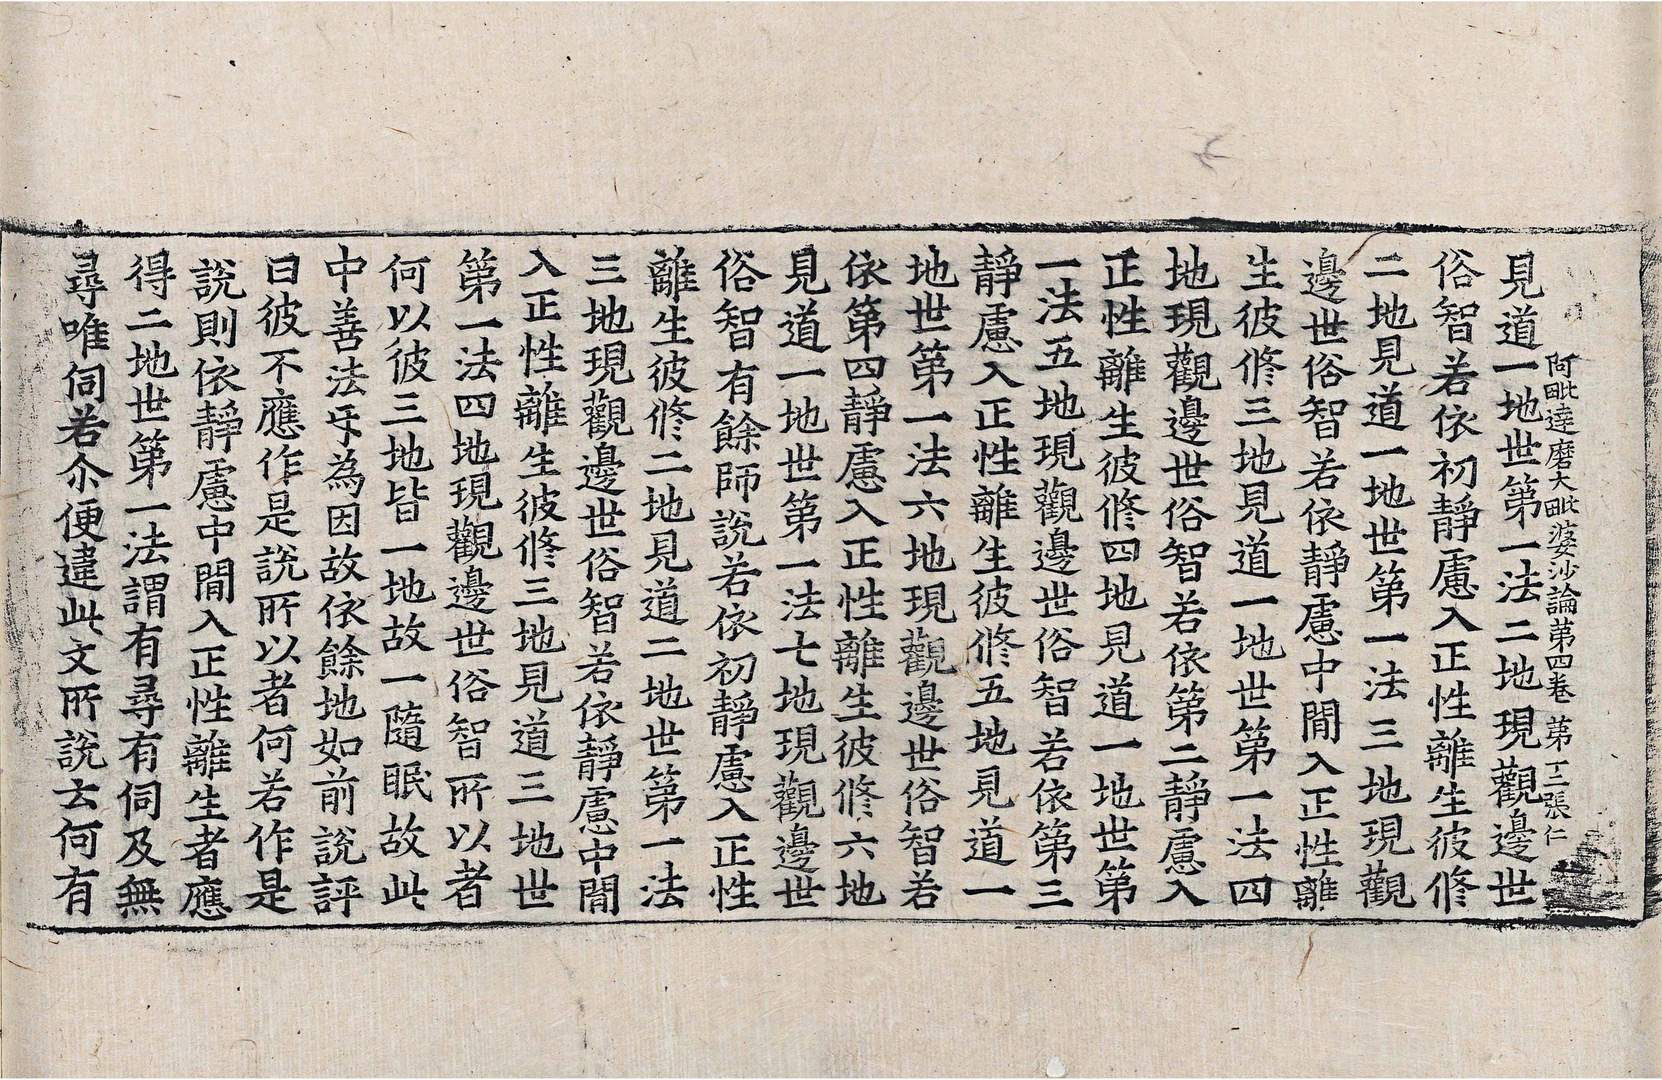 阿毗達磨大毗婆沙論第四卷　第十二張　仁
見道一地世第一法二地現觀邊世
俗智若依初靜慮入正性離生彼修
二地見道一地世第一法三地現觀
邊世俗智若依靜慮中間入正性離
生彼修三地見道一地世第一法四
地現觀邊世俗智若依第二靜慮入
正性離生彼修四地見道一地世第
一法五地現觀邊世俗智若依第三
靜慮入正性離生彼修五地見道一
地世第一法六地現觀邊世俗智若
依第四靜慮入正性離生彼修六地
見道一地世第一法七地現觀邊世
俗智有餘師說若依初靜慮入正性
離生彼修二地見道二地世第一法
三地現觀邊世俗智若依靜慮中間
入正性離生彼修三地見道三地世
第一法四地現觀邊世俗智所以者
何以彼三地皆一地故一隨眠故此
中善法㸦為因故依餘地如前說評
曰彼不應作是說所以者何若作是
說則依靜慮中間入正性離生者應
得二地世第一法謂有尋有伺及無
尋唯伺若尒便違此文所說去何有